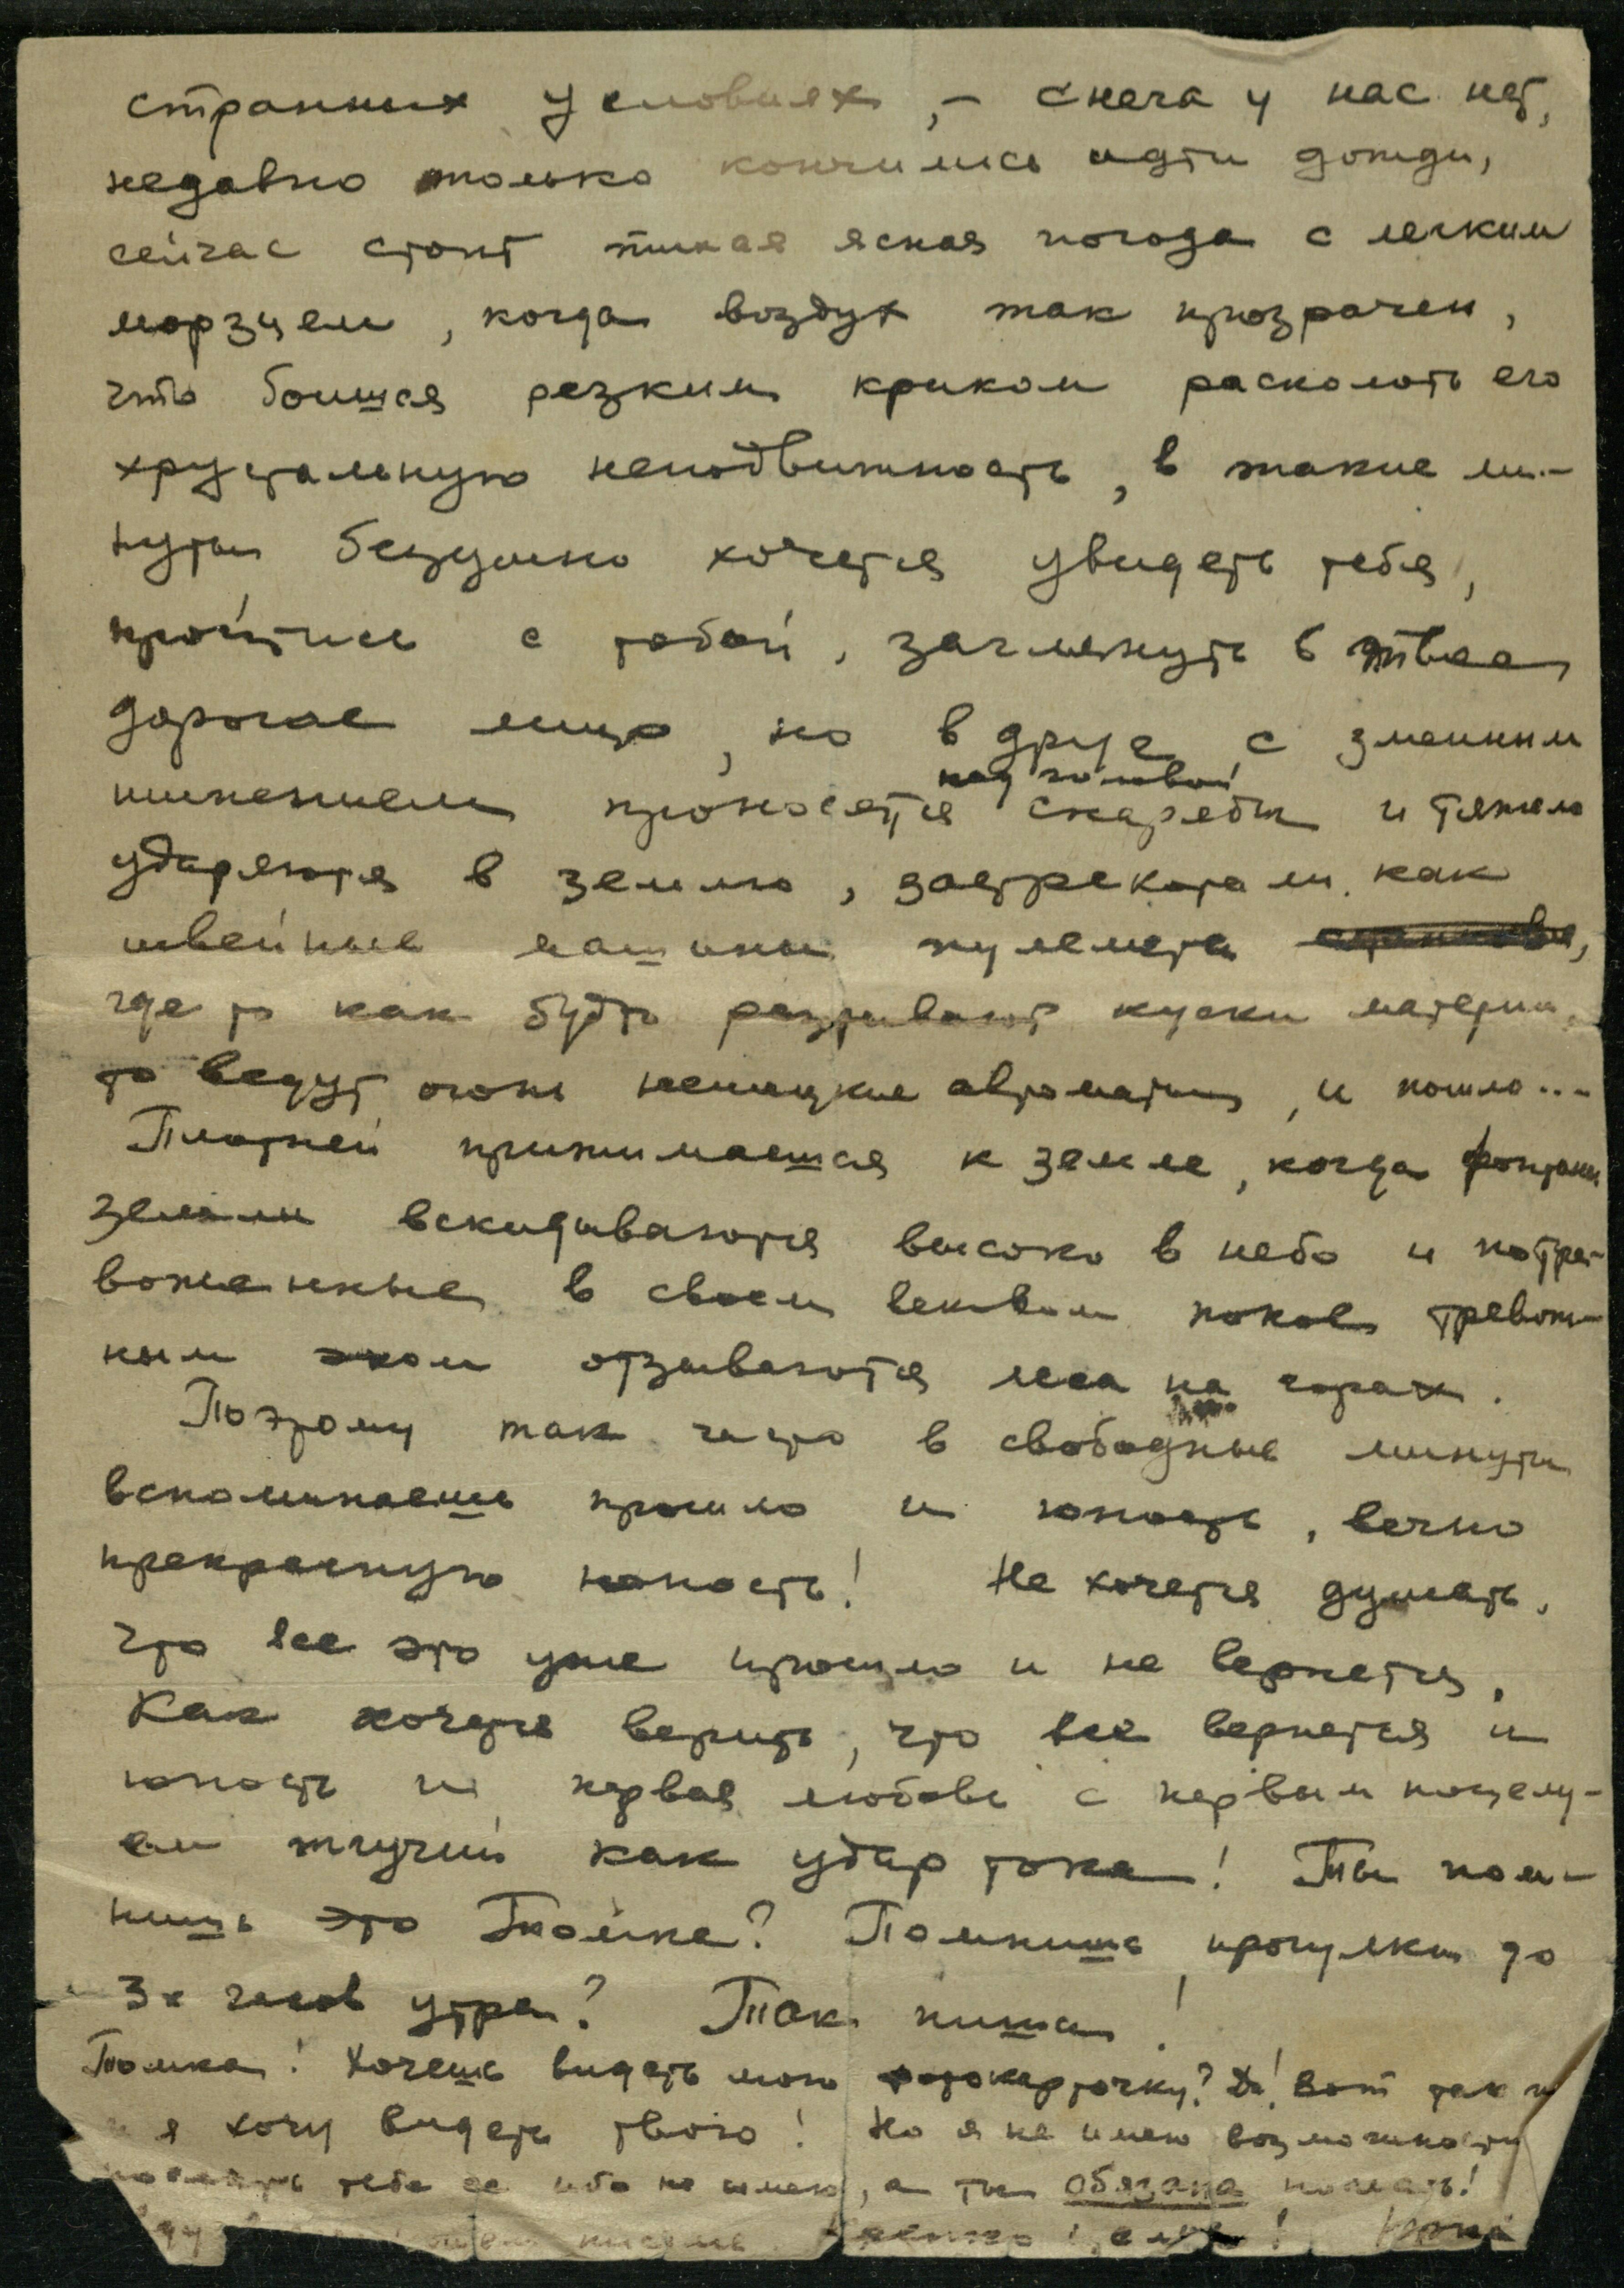 странных условиях, – снега у нас нет,
недавно только кончились идти дожди,
сейчас стоит тихая ясная погода с легким
морзцем, когда воздух так прозрачен,
что боишся резким криком расколоть его
хрустальную неподвижность, в такие ми-
нуты безумно хочется увидеть тебя,
пройтись с тобой, заглянуть в твое
дорогое лицо, но вдруг с змеиным
над головой
шипением проносятся снаряды и тяжело
ударяются в землю, застрекотали как
швейные машины пулеметы станковые,
где то как будто разрывают куски материи,
то ведут огонь немецкие автоматы, и пошло...
Плотней прижимаешся к земле, когда фонтаны
земли вскидываются высоко в небо и потре-
воженные в своем вековом покое тревож-
ным эхом отзываются леса на горах.
Поэтому так часто в свободные минуты
вспоминаешь прошло и юность, вечно
прекрасную юность! Не хочется думать,
что все это уже прошло и не вернется,
Как хочется верить, что все вернется и
юность и первая любовь с первым поцелу-
ем жгучий как удар тока! Ты пом-
нишь это Томка? Помнишь прогулки до
3х часов утра? Так пиши!
Томка! Хочешь видеть мою фотокарточку? Да! Вот так и
и я хочу видеть твою! Но я не имею возможности
послать тебе ее ибо не имею, а ты обязана послать!
писем. Крепко целую! Юрка